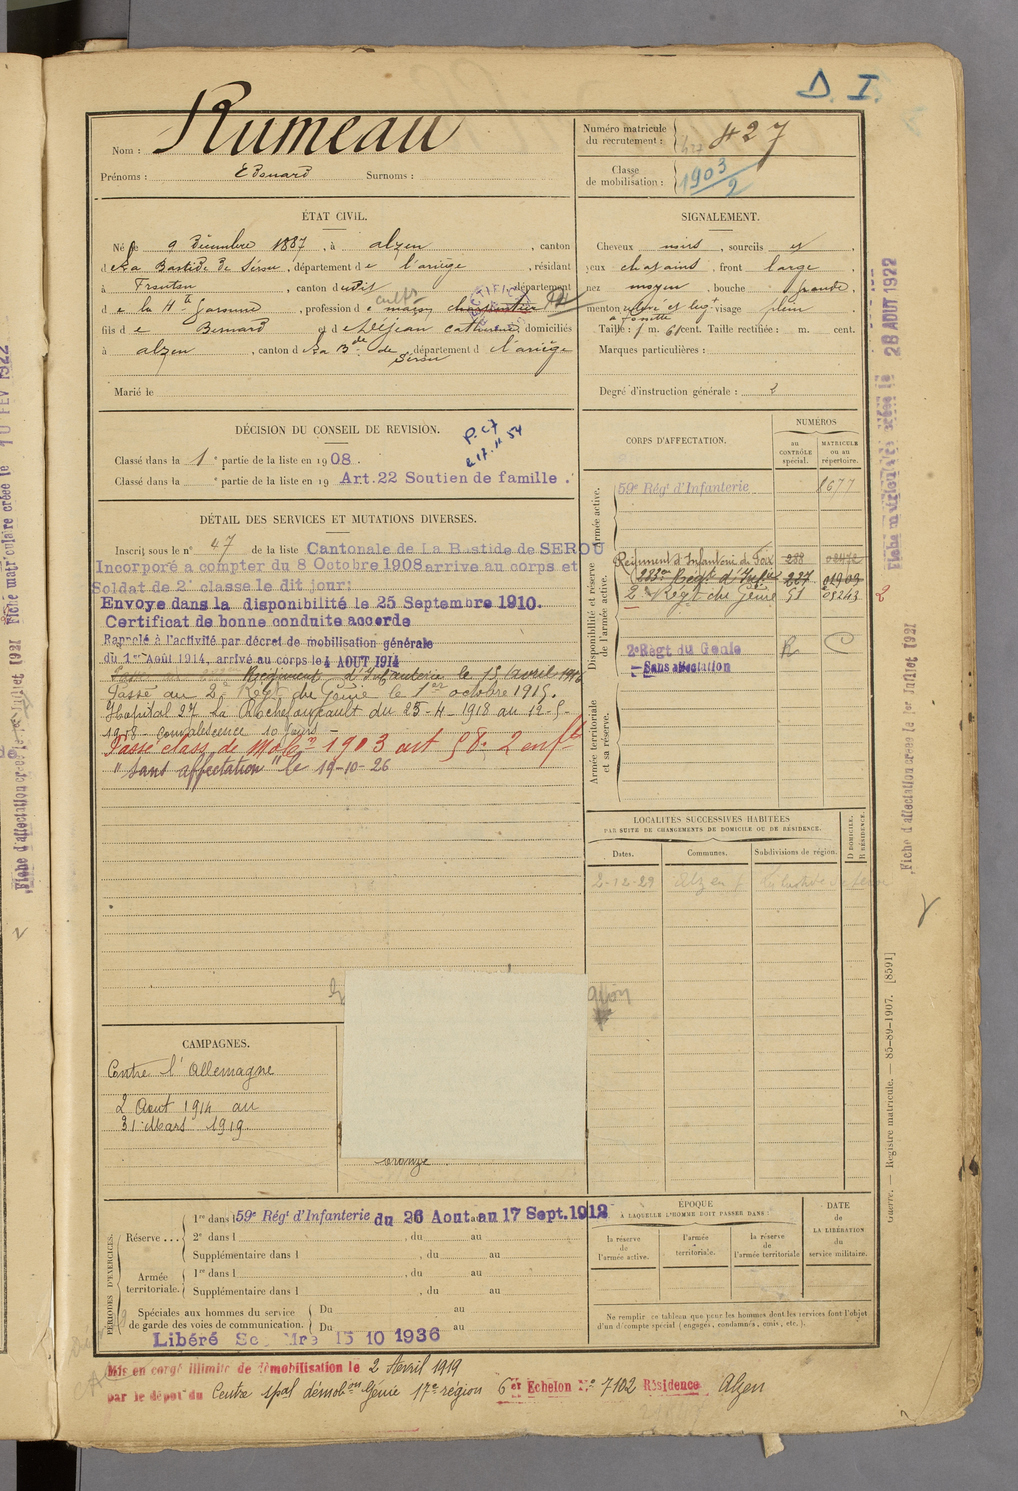 D. I.
Nom : Rumeau
Prénoms : Edouard Surnoms :
Numéro matricule du recrutement : 427
Classe de mobilisation : 1903/2
ÉTAT CIVIL.
Né le 9 décembre 1887, à Alzen, canton
de La Bastide de Sérou, département de l'ariège, résidant
à, canton dudit, département
de la Hte Garonne, profession de maçon
fils de Bernard et de Déjean Catherine domiciliés
à alzen, canton de La Bde de Sérou, département de l'ariège
Marié le
SIGNALEMENT.
Cheveux noirs, sourcils id.
yeux chatains, front large,
nez moyen, bouche grande,
menton visage plein
à fossette
Taille : 1 m. 61 cent. Taille rectifiée : m. cent.
Marques particulières :
Degré d'instruction générale : 2
DÉCISION DU CONSEIL DE REVISION.
Classé dans la 1e partie de la liste en 1908.
Classé dans la e partie de la liste en 19 Art.22 Soutien de famille.
P. C7
le 17.11 54
DÉTAIL DES SERVICES ET MUTATIONS DIVERSES.
Inscrit sous le n° 47 de la liste Cantonale de La Bastide de SEROU
Incorporé a compter du 8 Octobre 1908 arrive au corps et
Soldat de 2e classe le dit jour;
Envoye dans la disponibilité le 25 Septembre 1910.
Certificat de bonne conduite accorde
Rappelé à l'activité par décret de mobilisation générale
du 1er Août 1914, arrivé au corps le 4 AOUT 1914
Régiment d'Infanterie le 15 avril 1915
Passé au 2e Régt du Génie le 1er octobre 1915.
Hopital 27 La Rochefoucault du 25-4-1918 au 12-5-
1918 - convalescence 10 jours -
Passé class. de Mob.on 1903 art 58. 2 enfts
"sans affectation" le 19-10-26
CORPS D'AFFECTATION.
NUMÉROS
au CONTRÔLE spécial.
MATRICULE ou au répertoire.
Armée active.
59e Régt d'Infanterie 8677
Disponibilité et réserve de l'armée active.
Régiment d'Infanterie de Foix 288
283e Régt d'Infie 237 01909
2e Régt du Génie 51 08243 2
2e Régt du Génie R C
Sans affectation
Armée territoriale et sa réserve.
LOCALITÉS SUCCESSIVES HABITÉES
PAR SUITE DE CHANGEMENTS DE DOMICILE OU DE RÉSIDENCE.
Dates. Communes. Subdivisions de région. D DOMICILE. R RÉSIDENCE.
2-12-29 Alzen
CAMPAGNES.
Contre l'Allemagne
2 Aout 1914 au
31 Mars 1919.
bronze.
PÉRIODES D'EXERCICES.
Réserve ...
1re dans l 59e Régt d'Infanterie du 26 Aout au 17 Sept. 1912
2e dans l , du au
Supplémentaire dans l , du au
Armée territoriale.
1re dans l , du au
Supplémentaire dans l , du au
Spéciales aux hommes du service de garde des voies de communication.
Du au
Du au
Libéré Sce Mre 15 10 1936
ÉPOQUE
À LAQUELLE L'HOMME DOIT PASSER DANS :
la réserve de l'armée active.
l'armée territoriale.
la réserve de l'armée territoriale
DATE de LA LIBÉRATION du service militaire.
Ne remplir ce tableau que pour les hommes dont les services font l'objet
d'un décompte spécial (engagés, condamnés, omis, etc.).
Mis en congé illimité de démobilisation le 2 Avril 1919
par le dépot du Centre spal démobon Génie 17e région 6er Echelon No 7102 Résidence Alzen
Fiche matriculaire créée le 28 AOUT 1922
Fiche d'affectation créée le 1er Juillet 1921
Guerre. — Registre matricule. — 85-89-1907. [8591]
Fiche matriculaire créée le 10 FEV 1922
Fiche d'affectation créée le 1er Juillet 1921